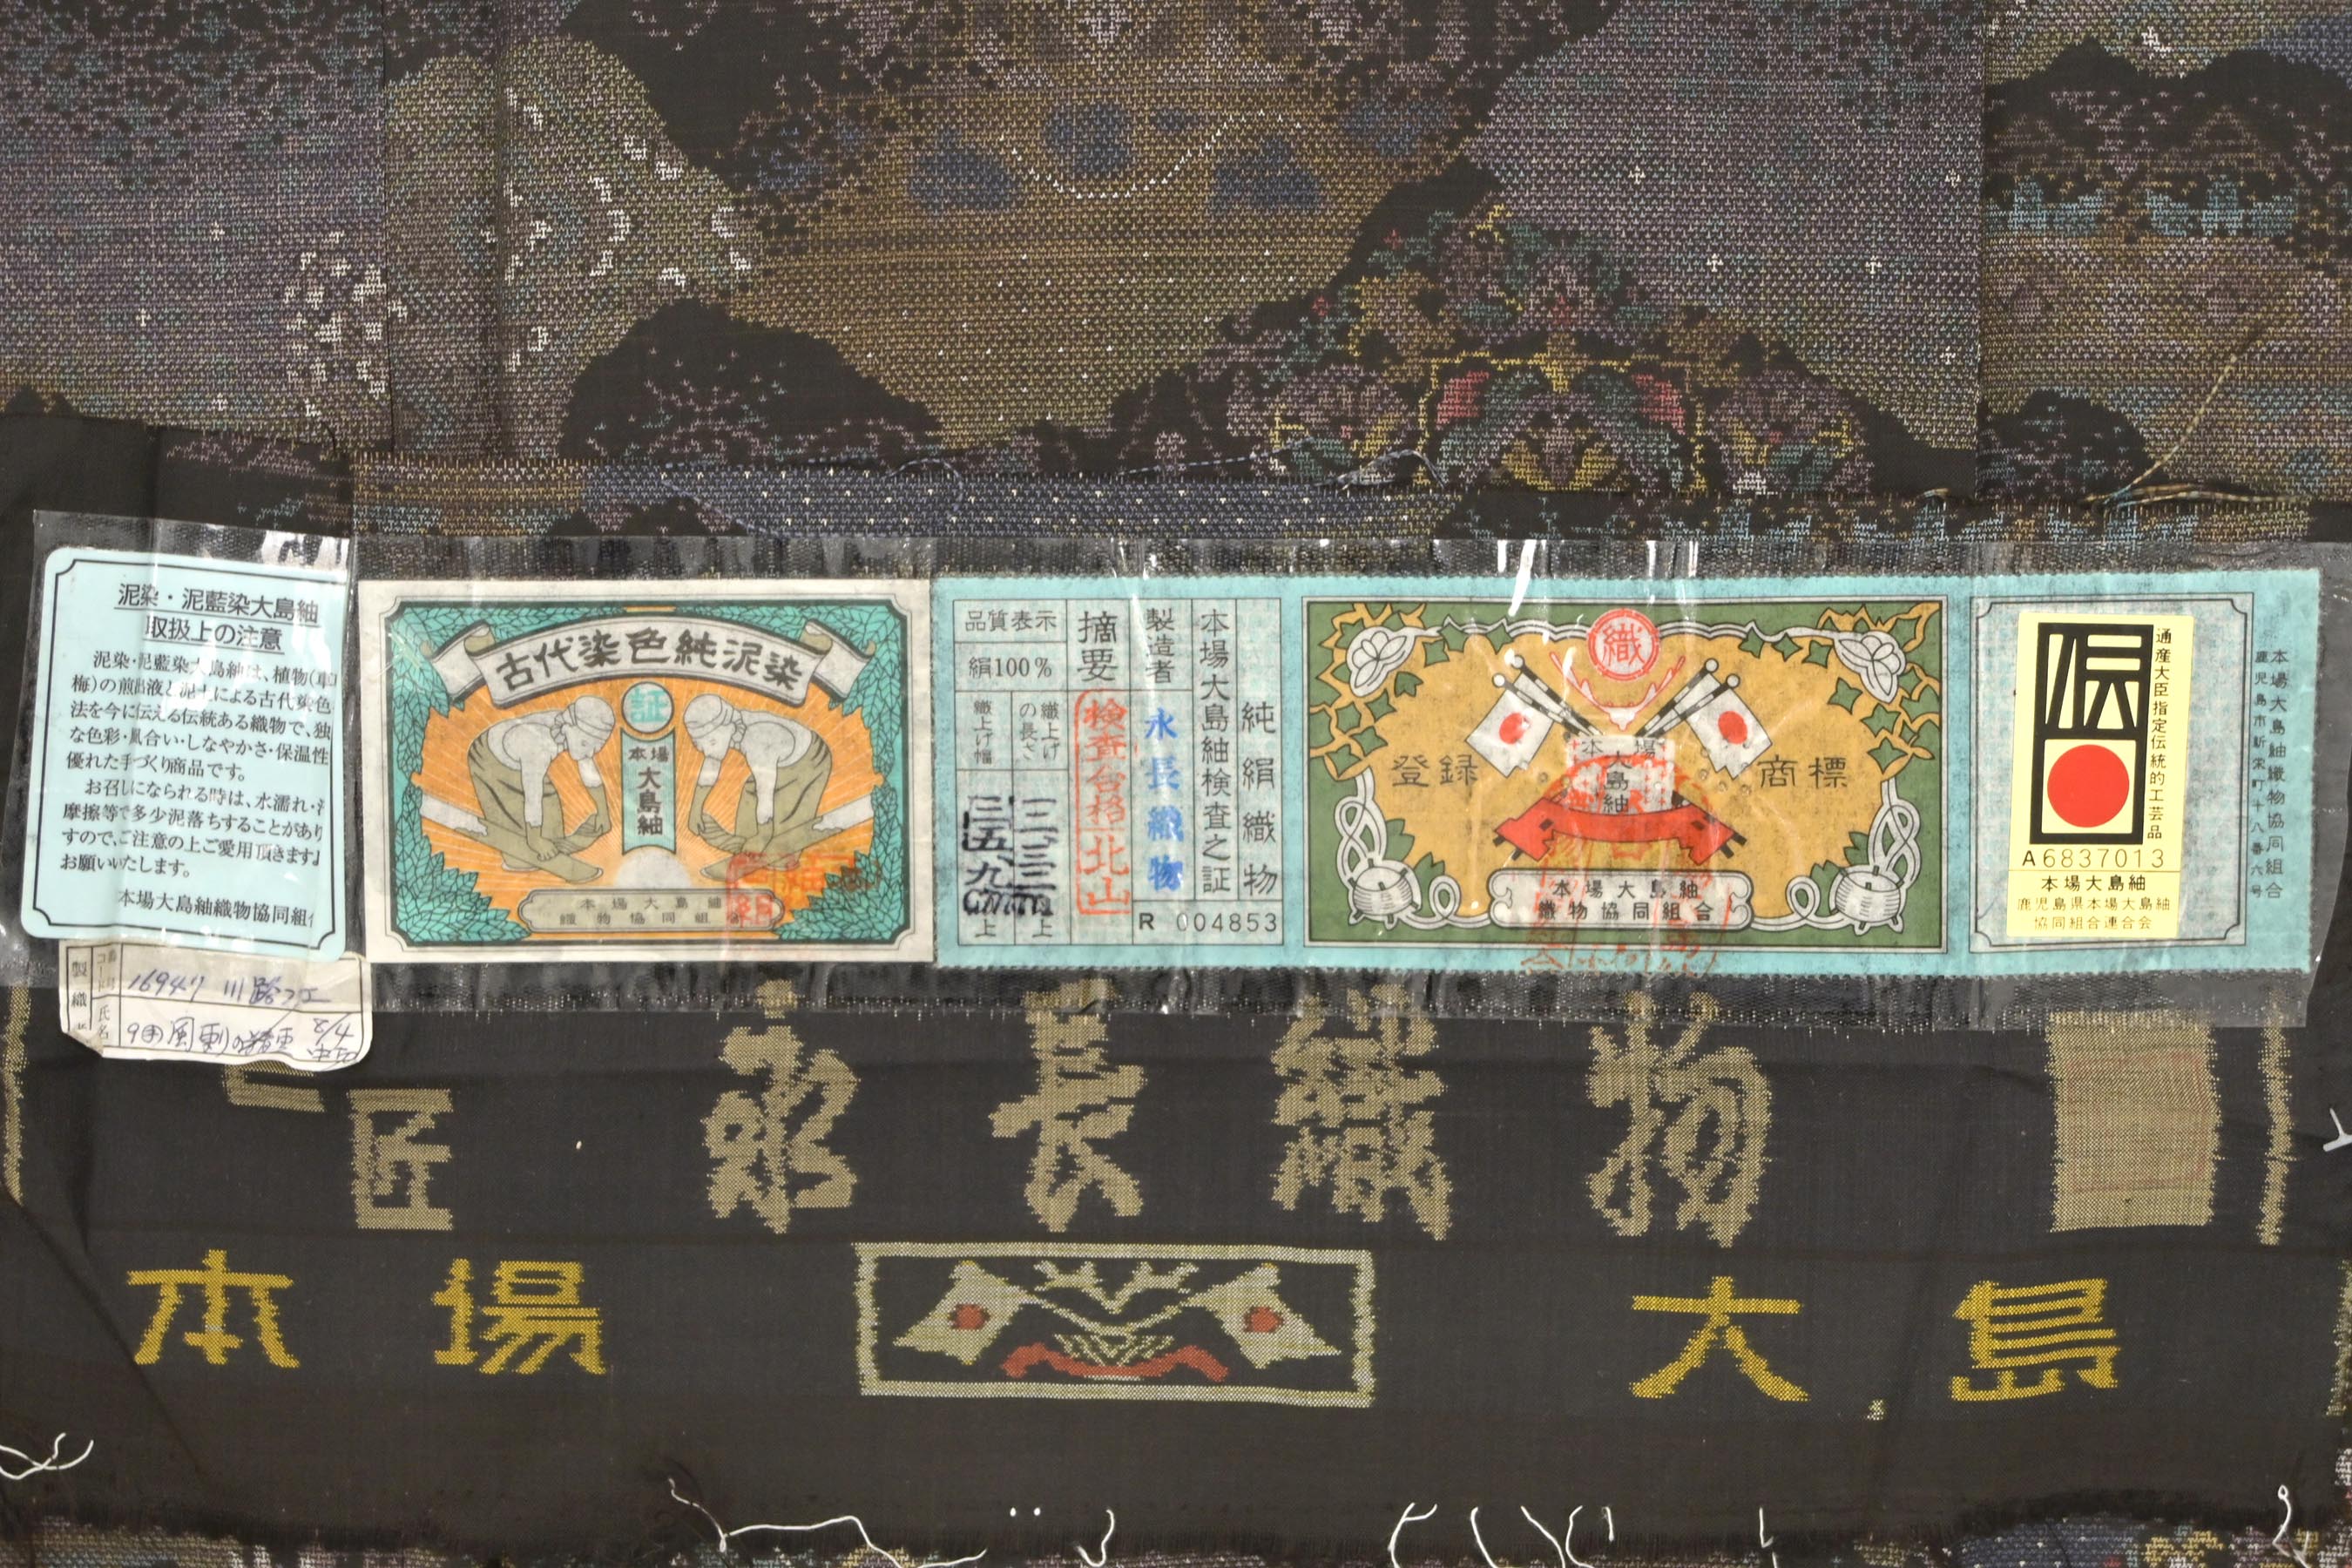 泥染・泥藍染大島紬
取扱上の注意
泥染・泥藍染大島紬は、植物(車
梅)の煎出液と泥土による古代染色
法を今に伝える伝統ある織物で、独
な色彩・風合い・しなやかさ・保温性
優れた手づくり商品です。
お召しになられる時は、水濡れ・
摩擦等で多少泥落ちすることがあり
すので、ご注意の上ご愛用頂きます
お願いいたします。
本場大島紬織物協同組
製織
コード
氏名
16947
古代染色純泥染
証
本場
大島紬
本場大島紬
織物協同組合
品質表示
絹100%
織上げ幅
織上げの長さ
摘要
検査合格
北山
製造者
永長織物
本場大島紬検査之証
純絹織物
R 004853
織
登録
商標
本場
大島紬
本場大島紬
織物協同組合
伝
通産大臣指定伝統的工芸品
A6837013
本場大島紬
鹿児島県本場大島紬
協同組合連合会
本場大島紬織物協同組合
鹿児島市新栄町十八番六号
匠
永長織物
本場
大島